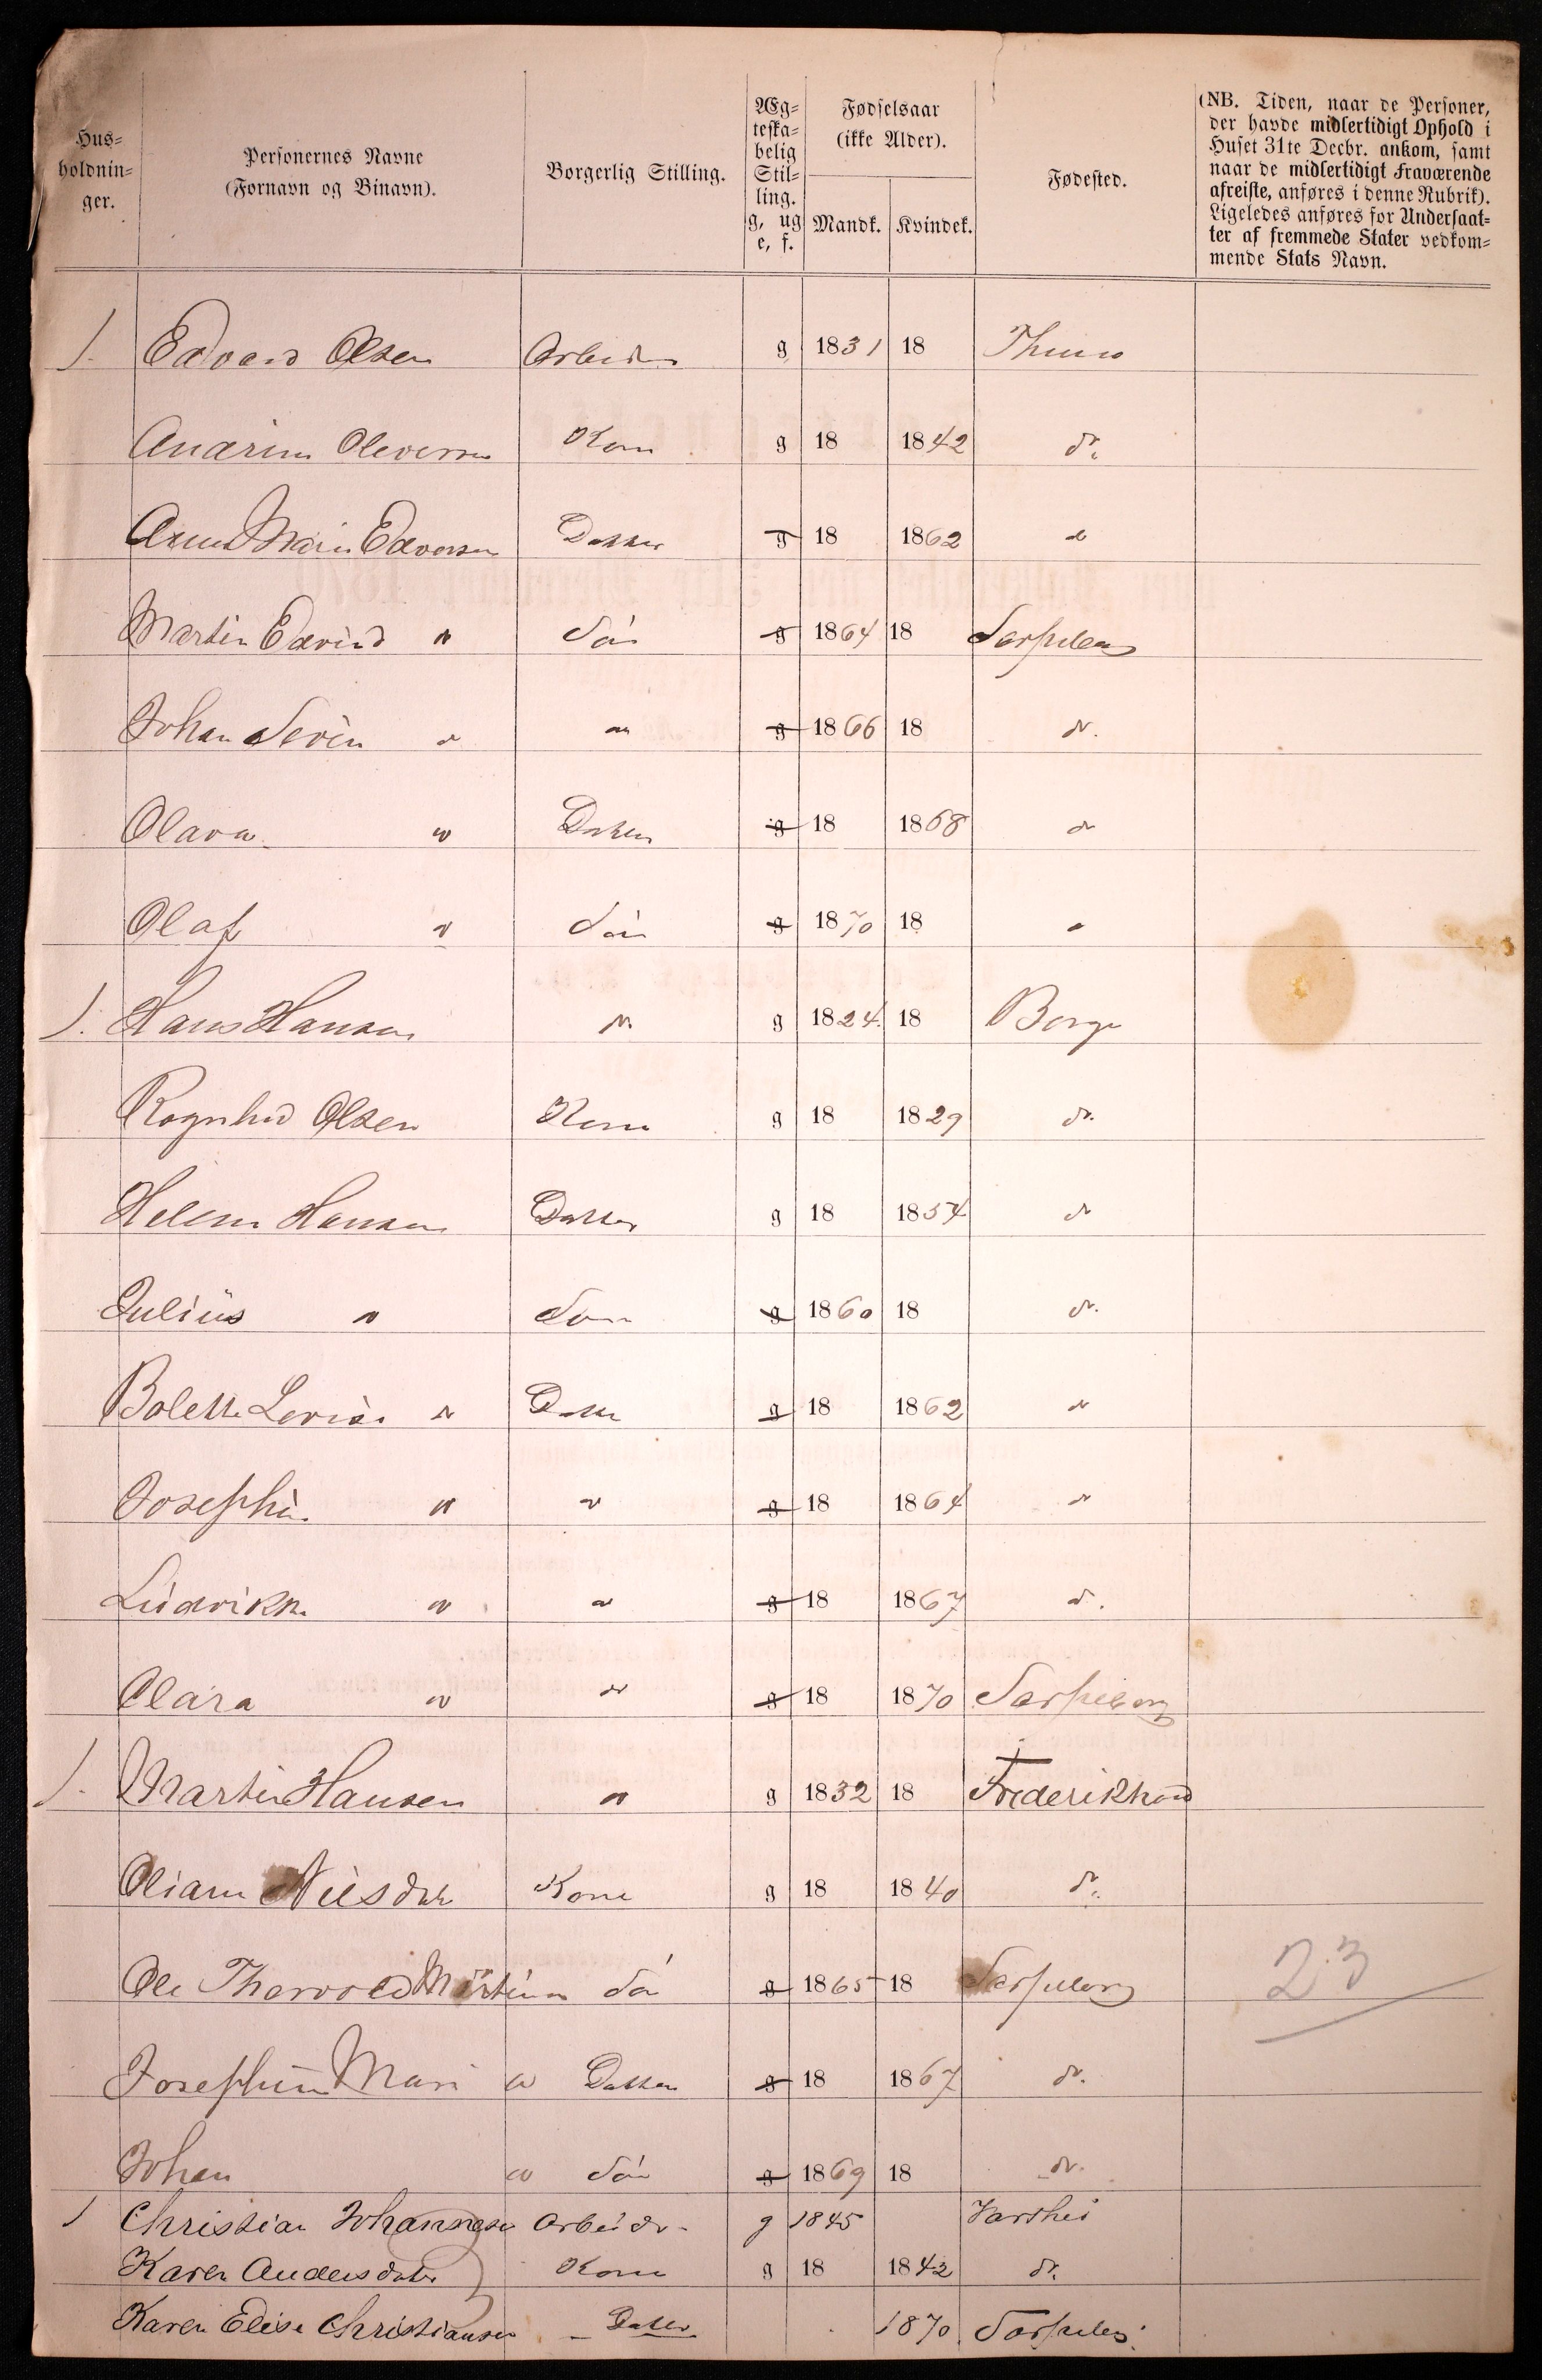 Hus=
holdnin=
ger.
Personernes Navne
(Fornavn og Binavn).
Borgerlig Stilling.
Æg=
teska=
belig
Stil=
ling.
g, ug
e, f.
Fødselsaar
(ikke Alder).
Mandk. Kvindek.
Fødested.
(NB. Tiden, naar de Personer,
der havde midlertidigt Ophold i
Huset 31te Decbr. ankom, samt
naar de midlertidigt Fraværende
afreiste, anføres i denne Rubrik).
Ligeledes anføres for Undersaat=
ter af fremmede Stater vedkom=
mende Stats Navn.
1. Edvard Olsen Arbeider g 1831 18 Thune
Kone g 18 1842 do
Anna Marie Edvardsen Datter g 18 1862 "
Martin Edvind " Søn g 1864 18 Sarpsborg
Johan Severin " " g 1866 18 do.
Olava " Datter g 18 1868 do
Olaf " Søn g 1870 18 "
1. Hans Hansen " g 1824 18 Borge
Rognhild Olsen Kone g 18 1829 do.
Helene Hansen Datter g 18 1854 do
Julius " Søn g 1860 18 do.
Bolette Lovise " Datter g 18 1862 "
Josephine " " g 18 1864 "
Ludvikke " " g 18 1867 do.
Clara " " g 18 1870 Sarpsborg
1. Martin Hansen " g 1832 18 Frederikshald
Oliane Nilsdatr Kone g 18 1840 do.
Ole Thorvald Martinsen Søn g 1865 18 Sarpsborg
23
Josephine Marie " Datter g 18 1867 do.
Johan " Søn g 1869 18 do.
1 Christian Johannesen Arbeider g 1845
Karen Andersdatter Kone g 18 1842 do.
Karen Elise Christiansen Datter 1870. Sarpsborg